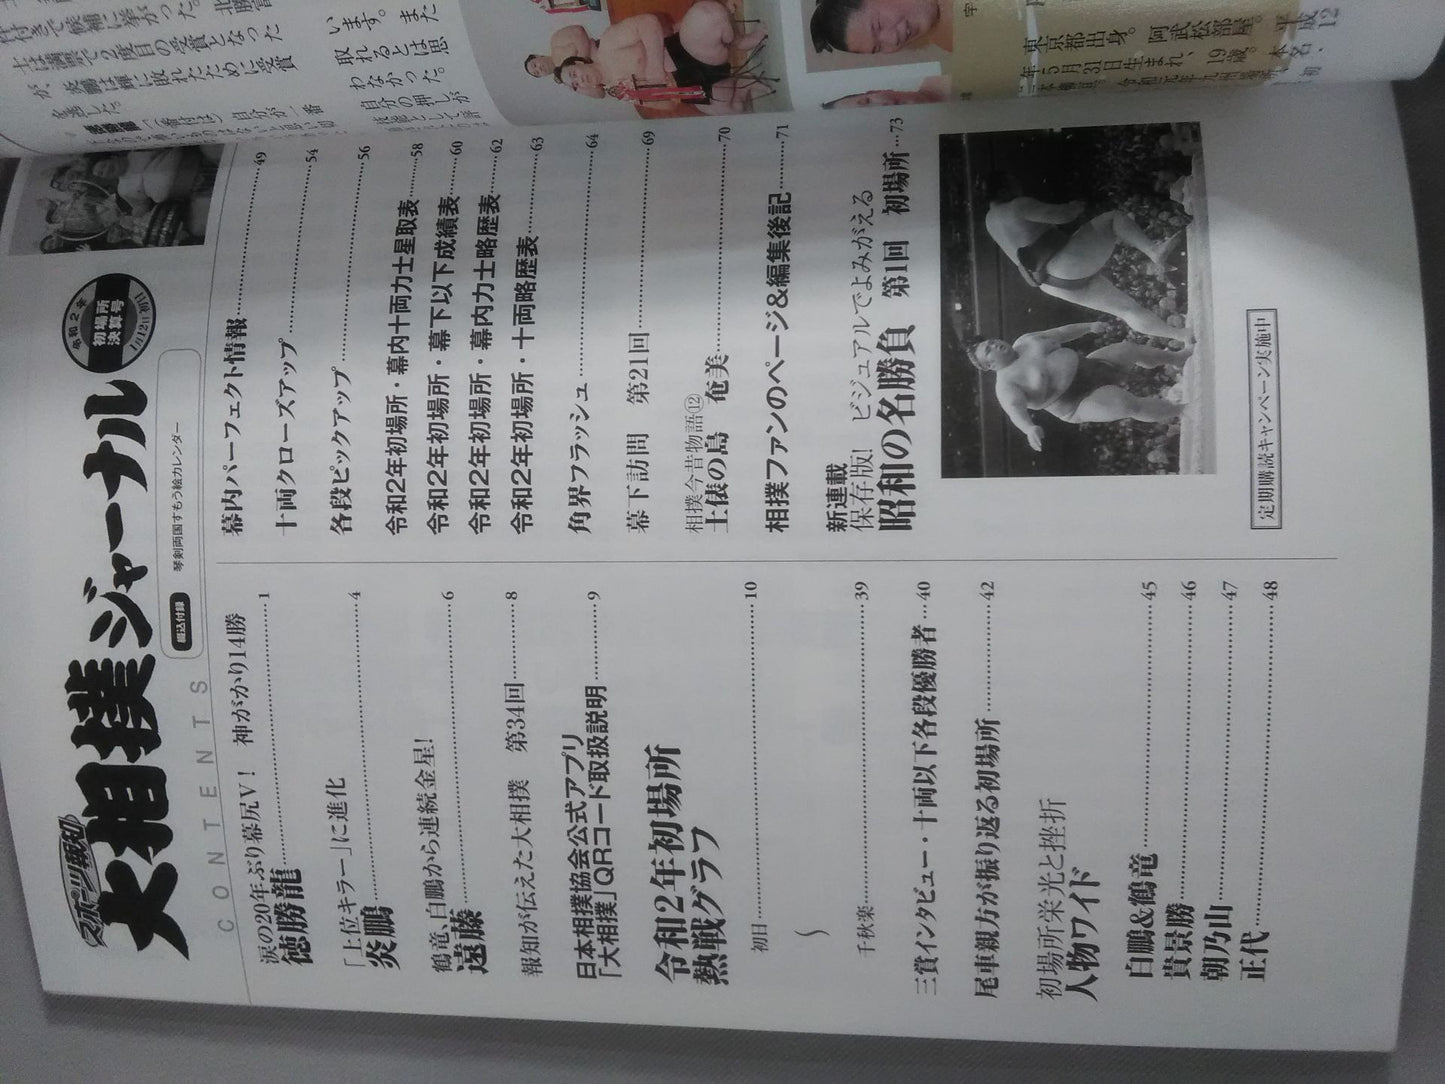 スポーツ報知
大相撲ジャーナル
令和2年
初場所
決算号
1月12日初日
CONTENTS
綴込付録
琴剣両国すもう絵カレンダー
涙の20年ぶり幕尻V! 神がかり14勝
徳勝龍……1
「上位キラー」に進化
炎鵬……4
鶴竜、白鵬から連続金星!
遠藤……6
報知が伝えた大相撲 第34回……8
日本相撲協会公式アプリ
「大相撲」QRコード取扱説明……9
令和2年初場所
熱戦グラフ
初日……10
〜
千秋楽……39
三賞インタビュー・十両以下各段優勝者…40
尾車親方が振り返る初場所……42
初場所栄光と挫折
人物ワイド
白鵬&鶴竜……45
貴景勝……46
朝乃山……47
正代……48
幕内パーフェクト情報……49
十両クローズアップ……54
各段ピックアップ……56
令和2年初場所・幕内十両力士星取表……58
令和2年初場所・幕下以下成績表……60
令和2年初場所・幕内力士略歴表……62
令和2年初場所・十両略歴表……63
角界フラッシュ……64
幕下訪問 第21回……69
相撲今昔物語⑫
土俵の島 奄美……70
相撲ファンのページ&編集後記……71
新連載
保存版! ビジュアルでよみがえる
昭和の名勝負 第1回 初場所…73
定期購読キャンペーン実施中
います。また
取れるとは思
わなかった。
自分の押しが
東京都出身。阿武松部屋。